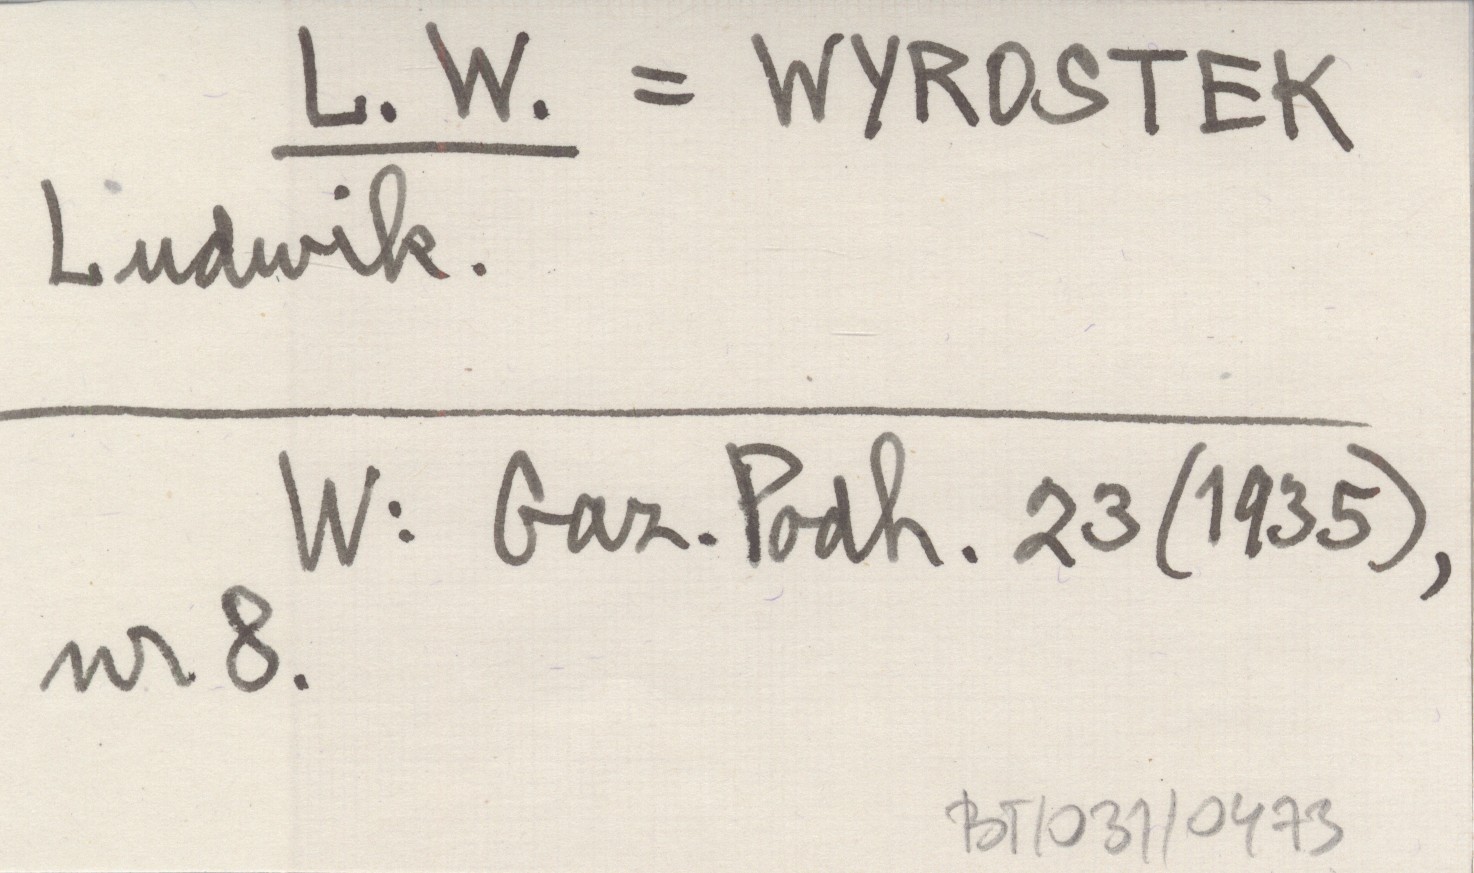 L. W. = WYROSTEK
Ludwik.
W: Gaz. Podh. 23 (1935),
nr 8.
BT/031/0473